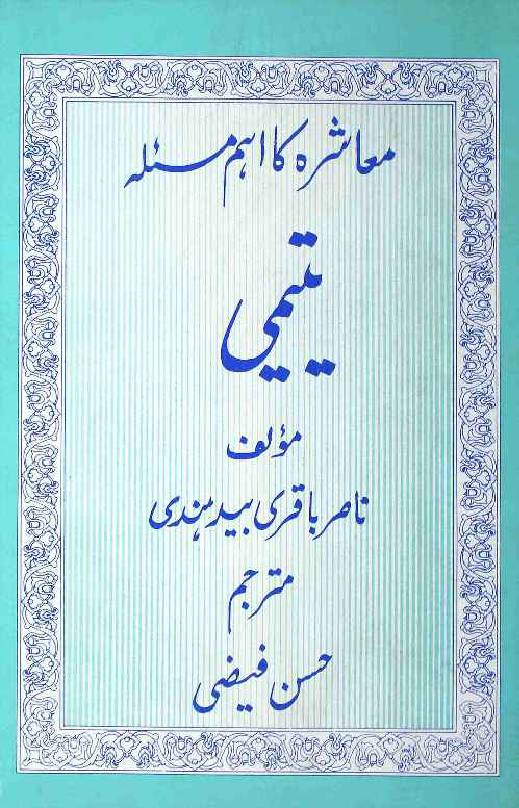 معاشرہ کا اہم مسئلہ
یتیمی
مؤلف
ناصر باقری بیدہندی
مترجم
حسن فیضی